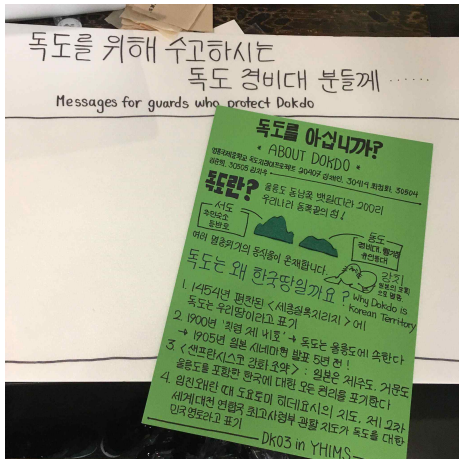 독도를 위해 수고하시는
독도 경비대 분들께 ······
Messages for guards who protect Dokdo
독도를 아십니까?
• ABOUT DOKDO •
20407 30419 30504
30505
독도란? 울릉도 동남쪽 뱃길따라 200리
우리나라 동쪽끝의 섬!
서도
주민숙소
등반로
동도
경비대,
유인등대
여러 멸종위기의 동식물이 존재합니다.
강치
독도는 왜 한국땅일까요?
Why Dokdo is
Korean Territory
1. 1454년 편찬된 <세종실록지리지>에
독도는 우리땅이라고 표기
2. 1900년 '칙령 제 41호' → 독도는 울릉도에 속한다
→ 1905년 일본 시네마현 발표 5년 전!
3. <샌프란시스코 강화 조약> : 일본은 제주도, 거문도
울릉도를 포함한 한국에 대한 모든 권리를 포기한다
4. 임진왜란 때 도요토미 히데요시의 지도, 제 2차
세계대전 연합국 최고사령부 관할 지도가 독도를 대한
민국영토라고 표기
DK03 in YHIMS